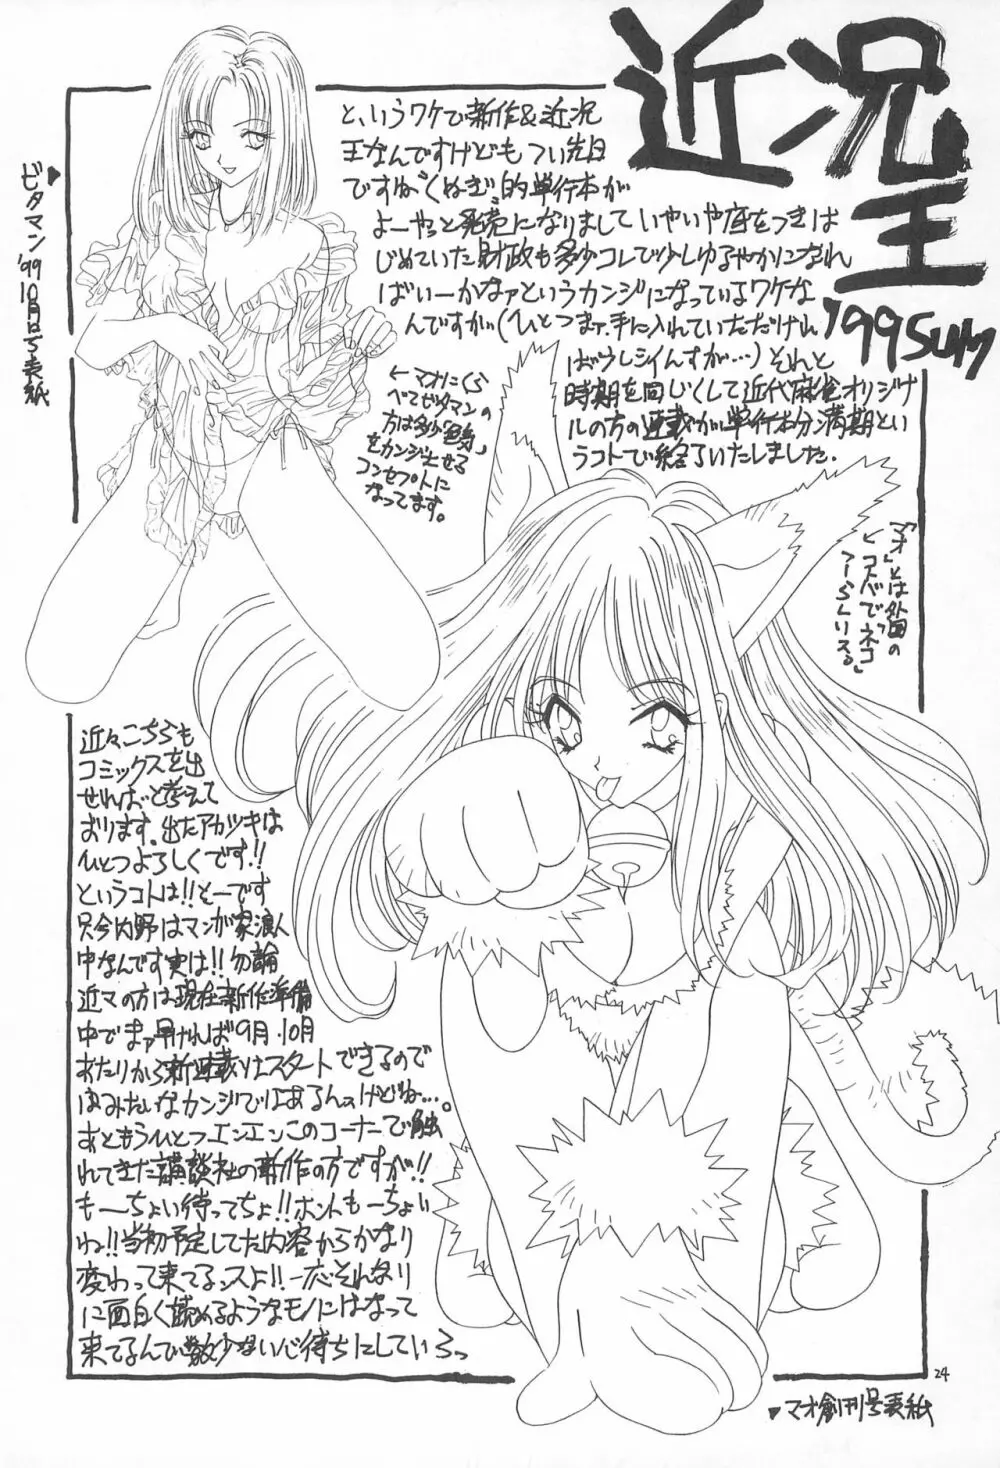 近況王
'99 SUM
と、いうワケで新作&近況
王なんですけどもつい先日
ですが"くぬぎ"的単行本が
よーやっと発売になりましていやいや底をつきは
じめていた財政も多少コレで少しゆるやかになれ
ばいーかなァというカンジになっているワケな
んですが(ひとつまァ、手に入れていただければ
ばウレシイんすが…)それと
時期を同じくして近代麻雀オリジナ
ルの方の連載が単行本分満期とい
うコトで終了いたしました.
ビタマン'99
10月号表紙
←マオにくら
べてビタマンの
方は多少「色気」
をカンジさせる
コンセプトに
なってます。
「マオ」とは外国の
コトバで「ネコ」
近々こちらも
コミックスを出
せれば、と考えて
おります.出たアカツキは
ひとつよろしくです!!
というコトは!!そーです
只今内野はマンガ家浪人
中なんです実は!!勿論
近マの方は現在新作準備
中でまァ早ければ9月・10月
あたりから新連載はスタートできるので
はみたいなカンジではあるんスけどね…。
あともうひとつエンエンこのコーナーで触
れてきた講談社の新作の方ですが!!
もーちょい待ってちょ!!ホントもーちょい
ね!!当初予定してた内容からかなり
変わって来てるンスよ!!一応それなり
に面白く読めるようなモノにはなって
来てるんで数少ない心待ちにしている
24
マオ創刊号表紙